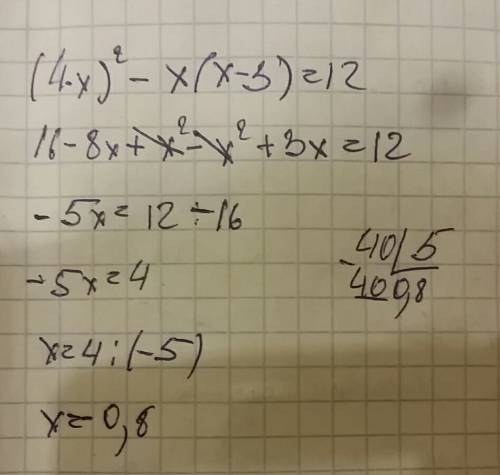 (4-x)² - x(x-3)=12
16-8x+x²-x²+3x=12
-5x=12-16
-5x=4
x=4:(-5)
x=-0,8
-40|5
40 0,8